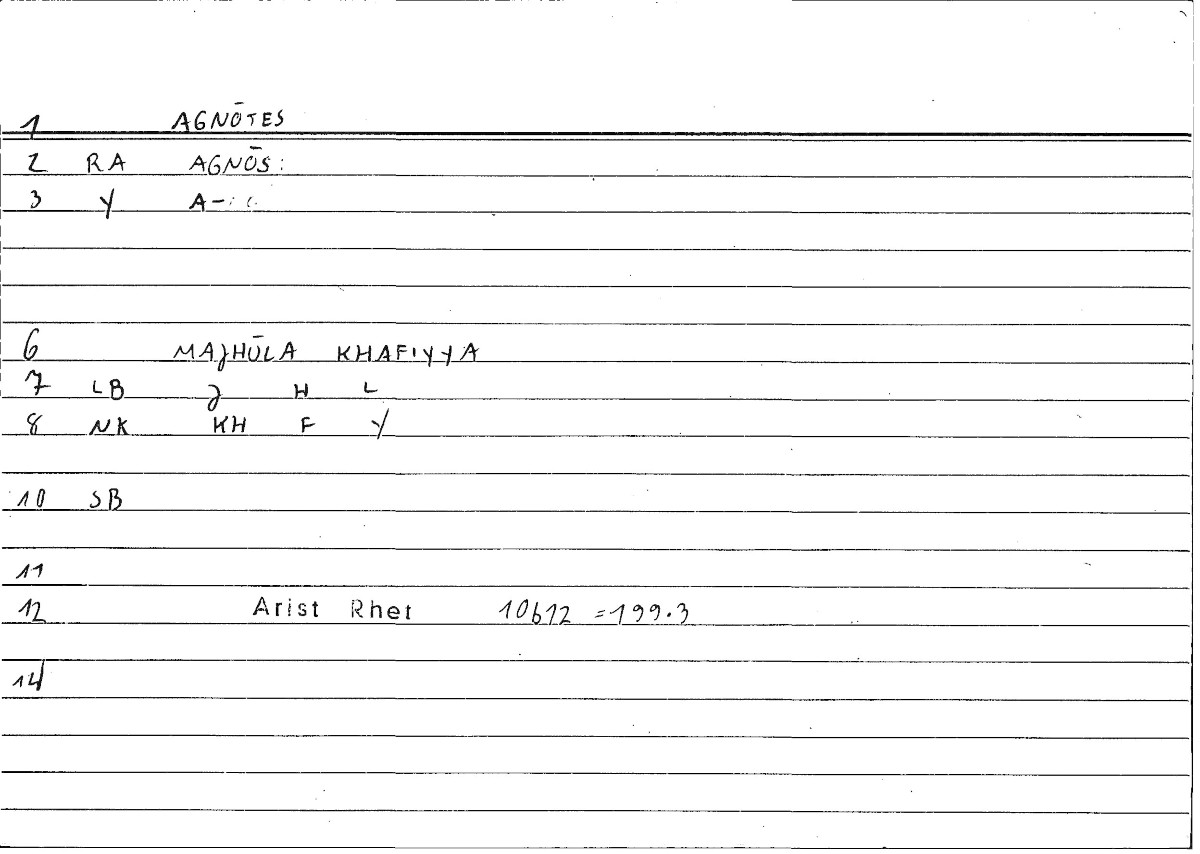 1 AGNŌTES
2 RA AGNŌS:
3 Y A-
6 MAJHŪLA KHAFIYYA
7 LB J H L
8 NK KH F Y
10 SB
11
12 Arist Rhet 10b12 =199.3
14